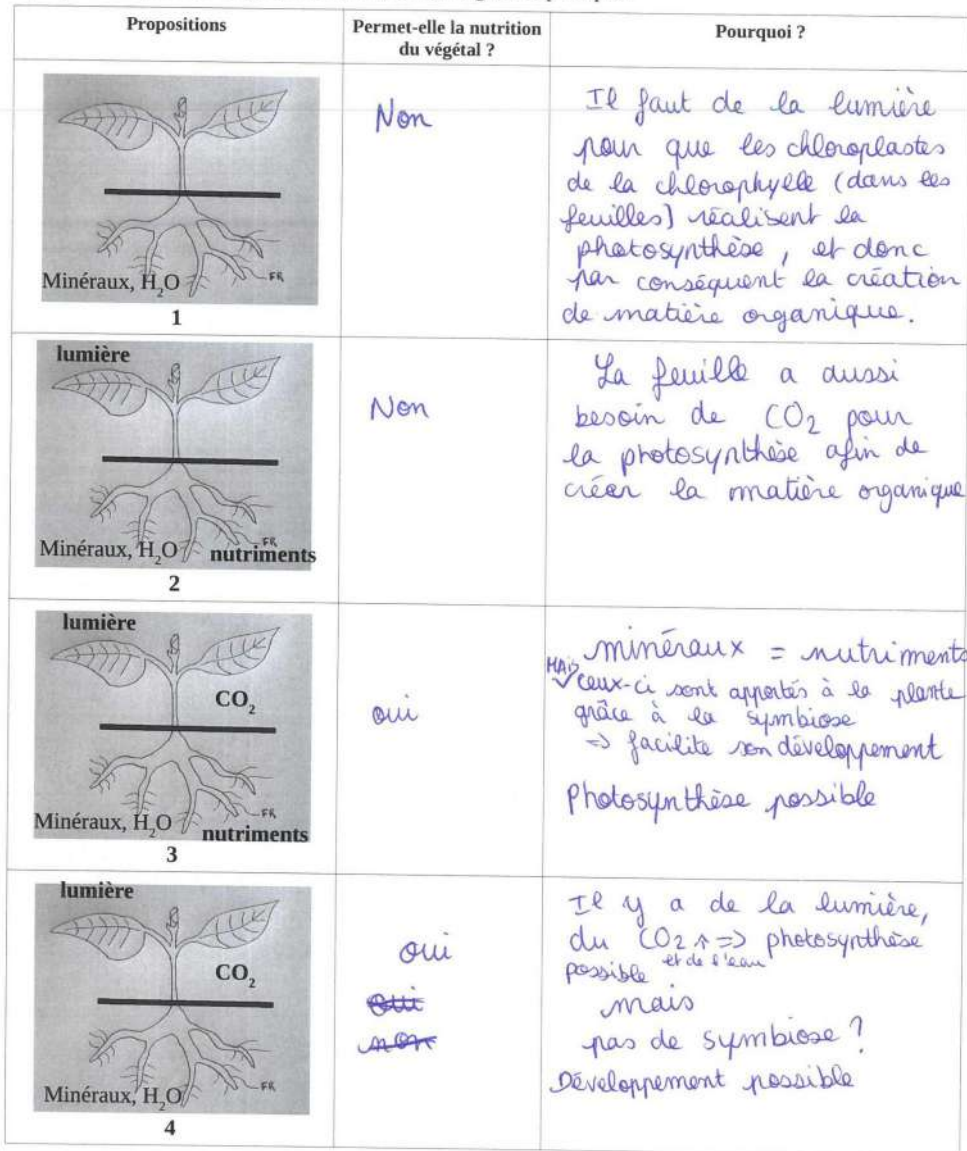 Propositions
Permet-elle la nutrition
du végétal ?
Pourquoi ?
Minéraux, H2O
FR
1
Non
Il faut de la lumière
pour que les chloroplastes
de la chlorophylle (dans les
feuilles) réalisent la
photosynthèse, et donc
par conséquent la création
de matière organique.
lumière
Minéraux, H2O
FR
nutriments
2
Non
La feuille a aussi
besoin de CO2 pour
la photosynthèse afin de
créer la matière organique
lumière
CO2
Minéraux, H2O
FR
nutriments
3
oui
minéraux = nutriments
MAIS ceux-ci sont apportés à la plante
grâce à la symbiose
=> facilite son développement
Photosynthèse possible
lumière
CO2
Minéraux, H2O
FR
4
oui
oui
non
Il y a de la lumière,
du CO2 et de l'eau => photosynthèse
possible
mais
pas de symbiose ?
Développement possible